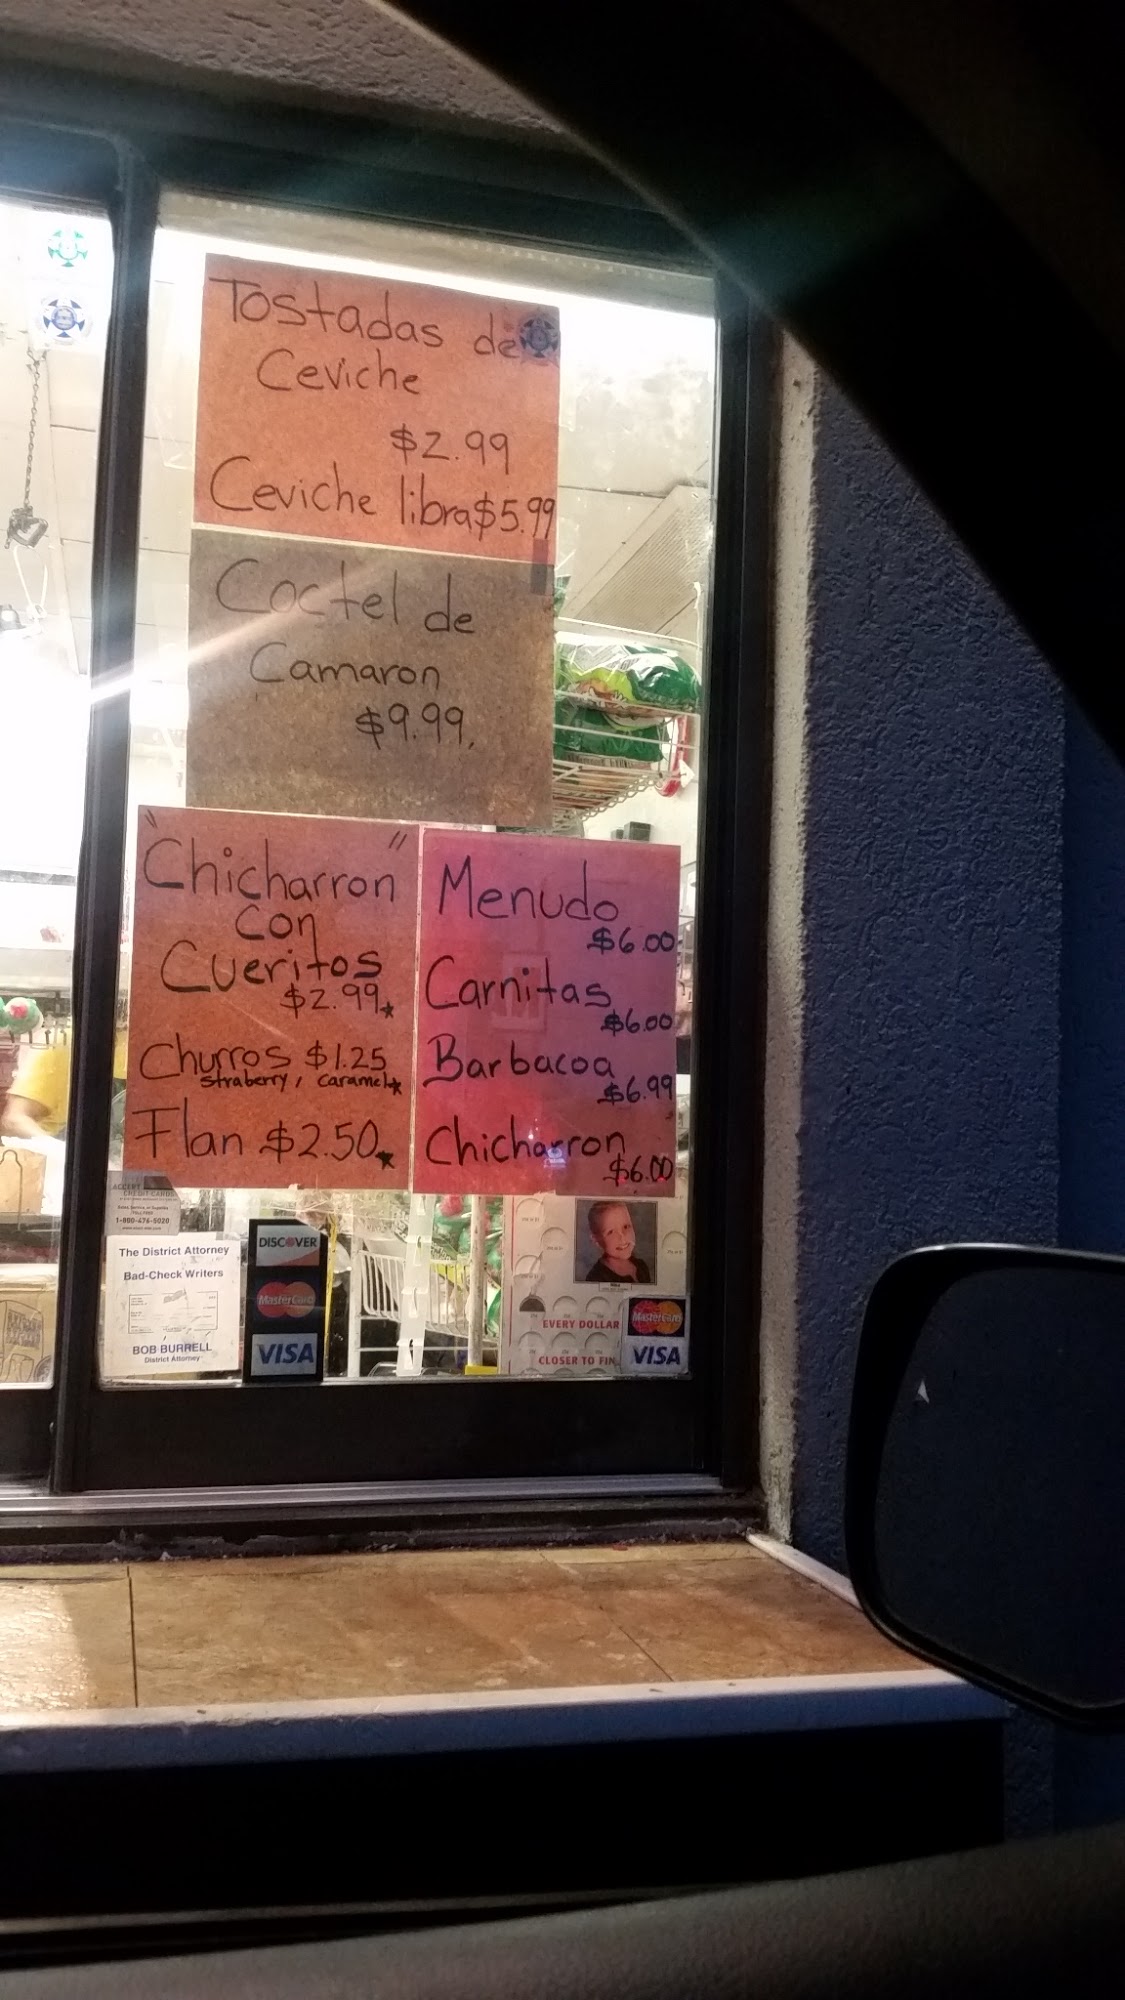 Tostadas de
Ceviche
$2.99
Ceviche libra $5.99
Coctel de
Camaron
$9.99.
"Chicharron"
con
Cueritos
$2.99*
Churros $1.25
straberry, caramel*
Flan $2.50*
Menudo
$6.00
Carnitas
$6.00
Barbacoa
$6.99
Chicharron
$6.00
CREDIT CARDS
1-800-476-5020
The District Attorney
Bad-Check Writers
BOB BURRELL
District Attorney
DISCOVER
MasterCard
VISA
EVERY DOLLAR
CLOSER TO FIN
MasterCard
VISA